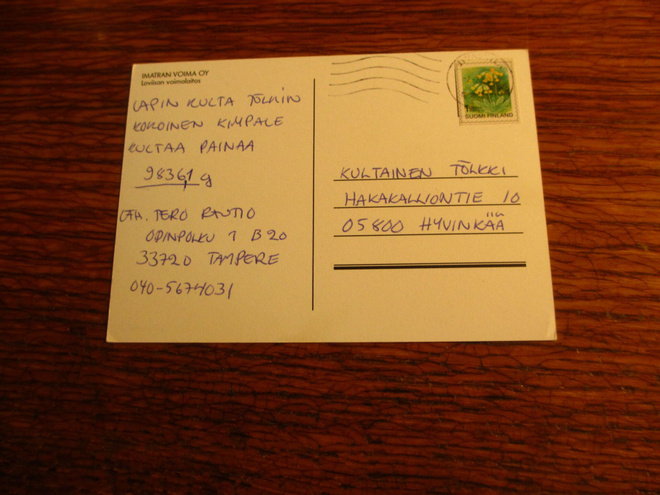 IMATRAN VOIMA OY
Loviisan voimalaitos
LAPIN KULTA TÖLKIN
KOKOINEN KIMPALE
KULTAA PAINAA
9836,1 g
LÄH. TERO RAUTIO
OPINPOLKU 1 B 20
33720 TAMPERE
040-5674031
SUOMI FINLAND
KULTAINEN TÖLKKI
HAKAKALLIONTIE 10
05800 HYVINKÄÄ